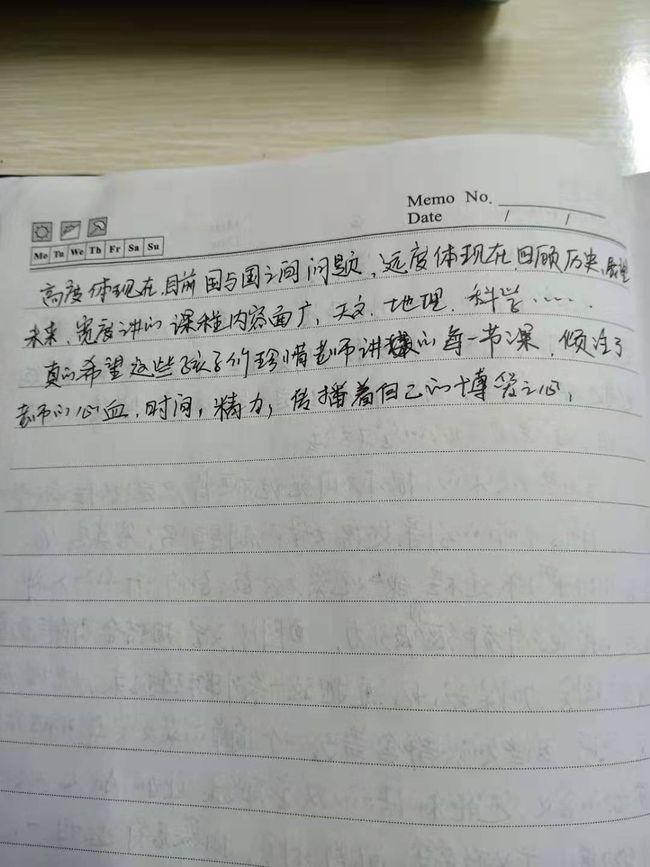 Memo No.
Date / /
Mo Tu We Th Fr Sa Su
高度体现在,目前国与国之间问题、远度体现在,回顾历史、展望
未来、宽度讲的课程内容面广、天文、地理、科学……
真的希望这些孩子们珍惜老师讲的每一节课,倾注了
老师的心血,时间,精力,传播着自己的博爱之心,